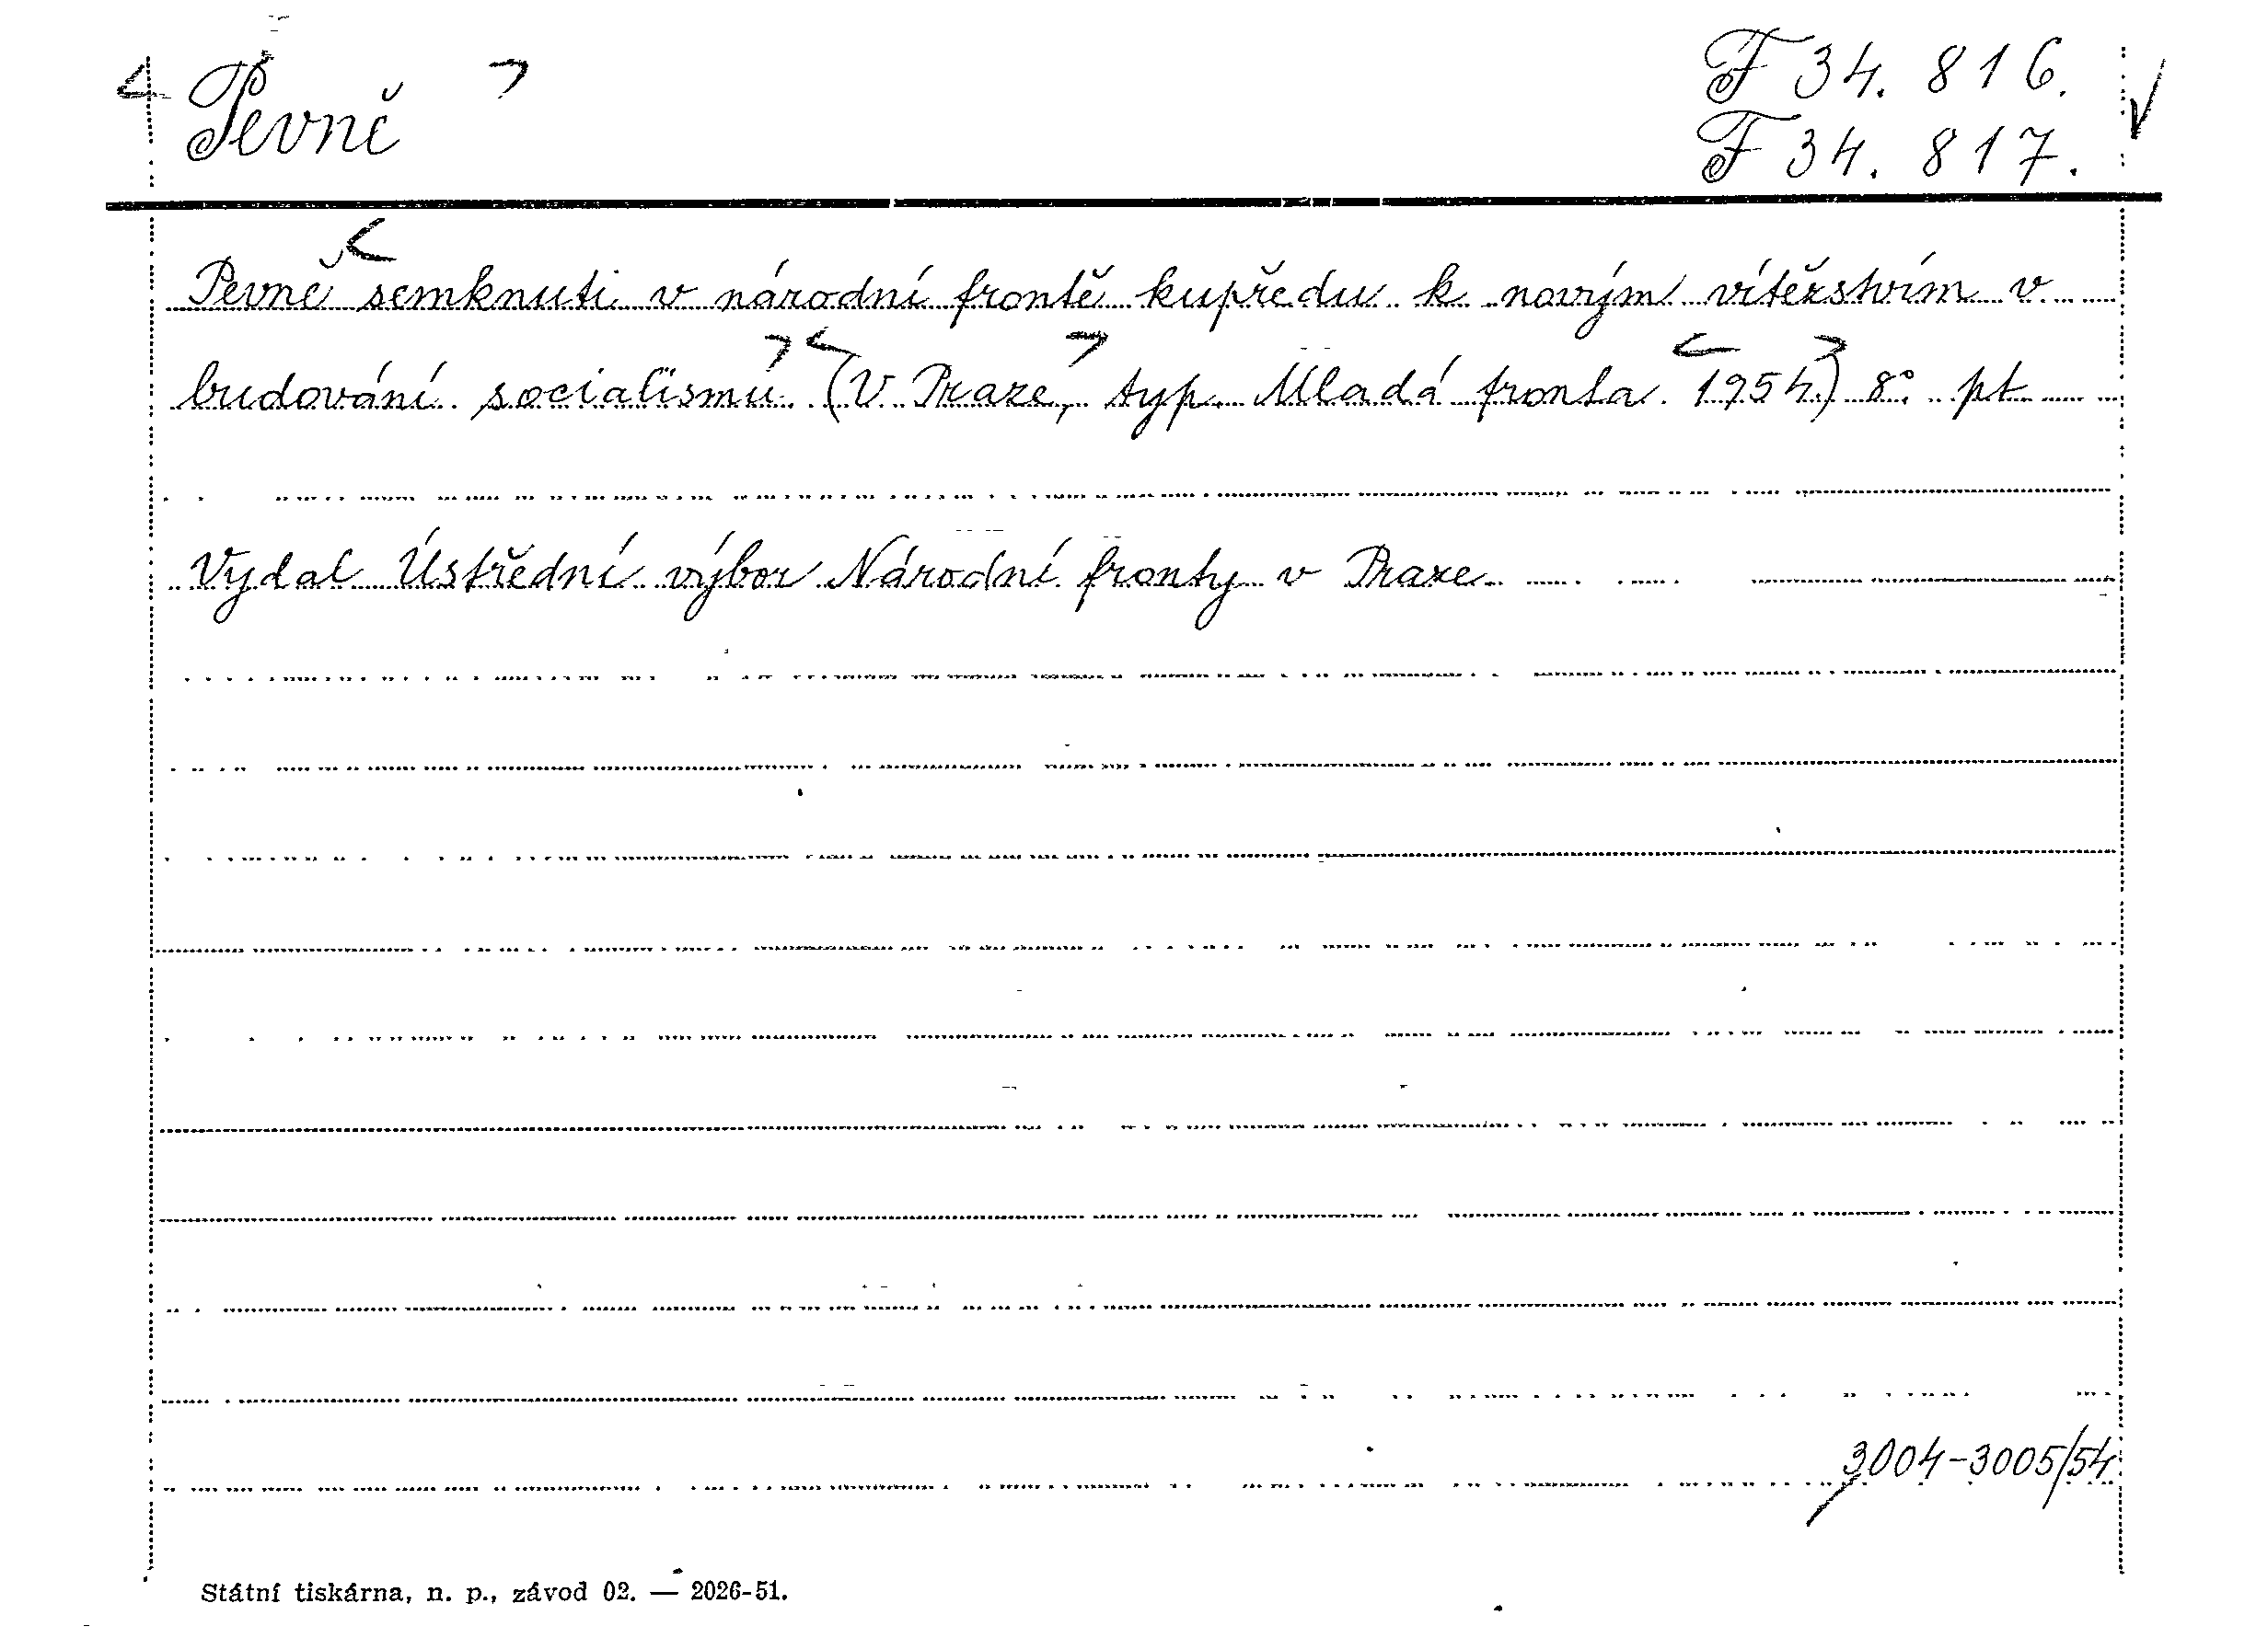 Pevně
F 34. 816.
F 34. 817.
Pevně semknuti v národní frontě kupředu k novým vítězstvím v
budování socialismu. (V Praze, typ. Mladá fronta 1954.) 8° pt
Vydal Ústřední výbor Národní fronty v Praze
3004-3005/54
Státní tiskárna, n. p., závod 02. — 2026-51.